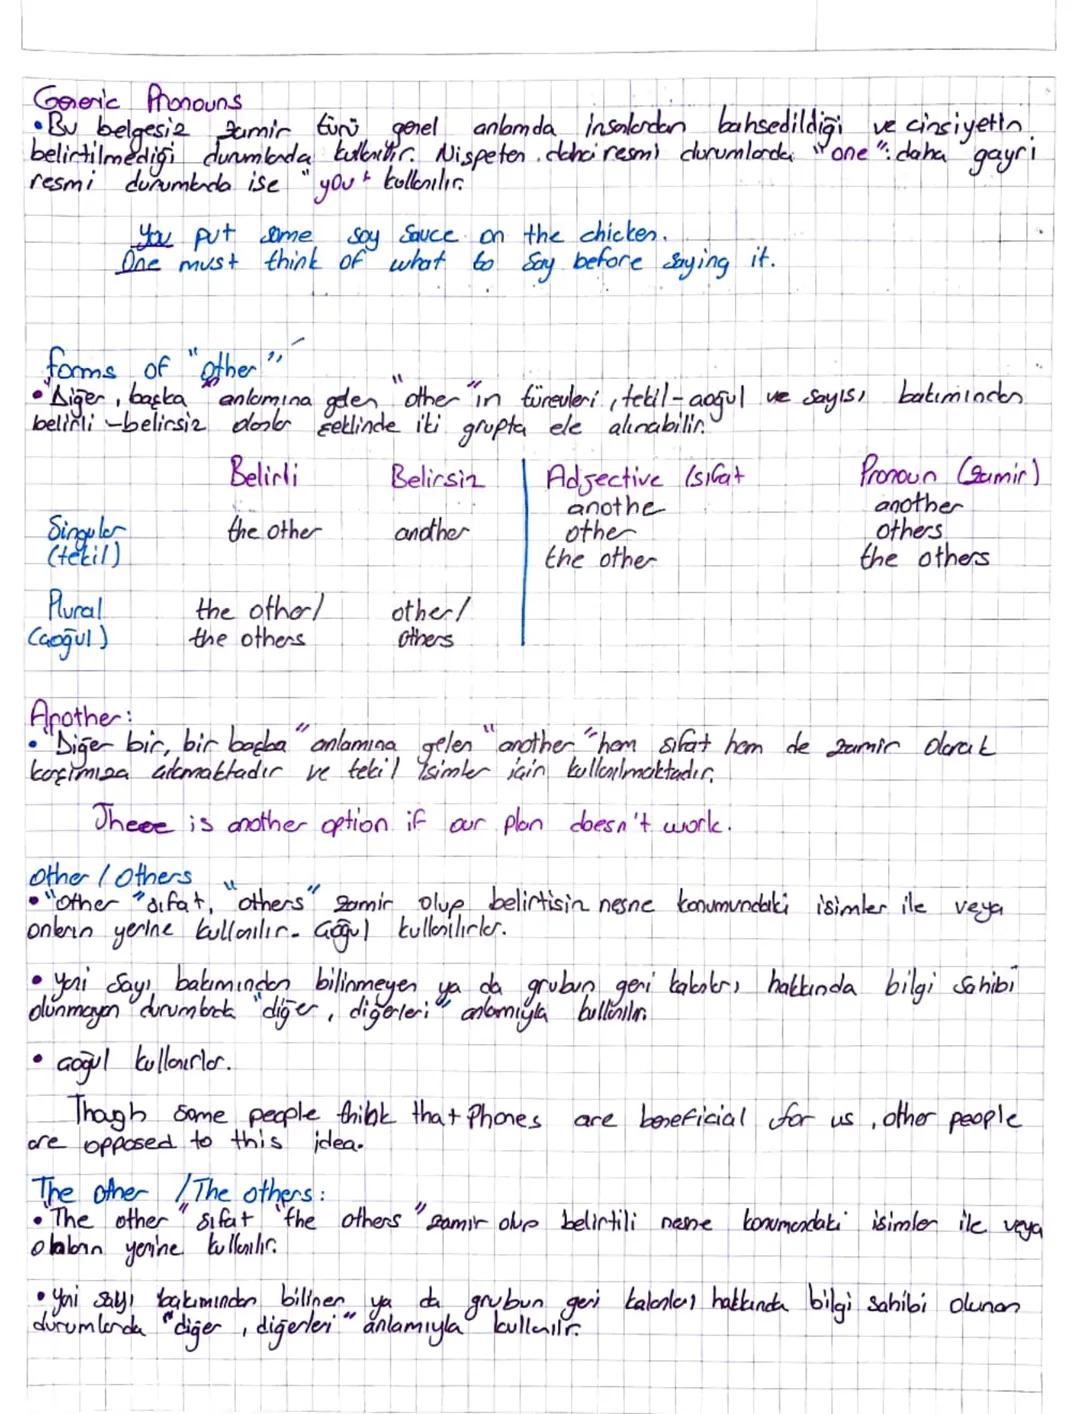 Generic Pronouns
• Bu belgesiz zamir türü genel anlamda insanlardan bahsedildiği ve cinsiyetin
belirtilmediği durumlarda kullanılır. Nispeten daha resmi durumlarda "one": daha gayri
resmi durumlarda ise "you" kullanılır.
You put some soy sauce on the chicken.
One must think of what to say before saying it.
forms of "other"
• "Diğer, başka" anlamına gelen "other"in türevleri, tekil-çoğul ve sayısı bakımından
belirli-belirsiz olanlar şeklinde iki grupta ele alınabilir.
Belirli Belirsiz Adjective /sıfat Pronoun (zamir)
anothe another
Singular (tekil) the other another other others
the other the others
Plural (çoğul) the other/ other/
the others others
Another:
• "Diğer bir, bir başka" anlamına gelen "another" hem sıfat hem de zamir olarak
karşımıza çıkmaktadır ve tekil isimler için kullanılmaktadır.
There is another option if our plan doesn't work.
Other / Others
• "Other" sıfat, "others" zamir olup belirtisin nesne konumundaki isimler ile veya
onların yerine kullanılır. Çoğul kullanılırlar.
• Yani sayı bakımından bilinmeyen ya da grubun geri kalanları hakkında bilgi sahibi
olunmayan durumlarda "diğer, diğerleri" anlamıyla kullanılır.
• çoğul kullanırlar.
Thagh some people think that Phones are beneficial for us, other people
are opposed to this idea.
The other / The others:
• "The other" sıfat "the others" zamir olup belirtili nesne konumundaki isimler ile veya
olabrın yerine kullanılır.
• Yani sayı bakımından bilinen ya da grubun geri kalanları hakkında bilgi sahibi olunan
durumlarda "diğer, diğerleri" anlamıyla kullanılır.